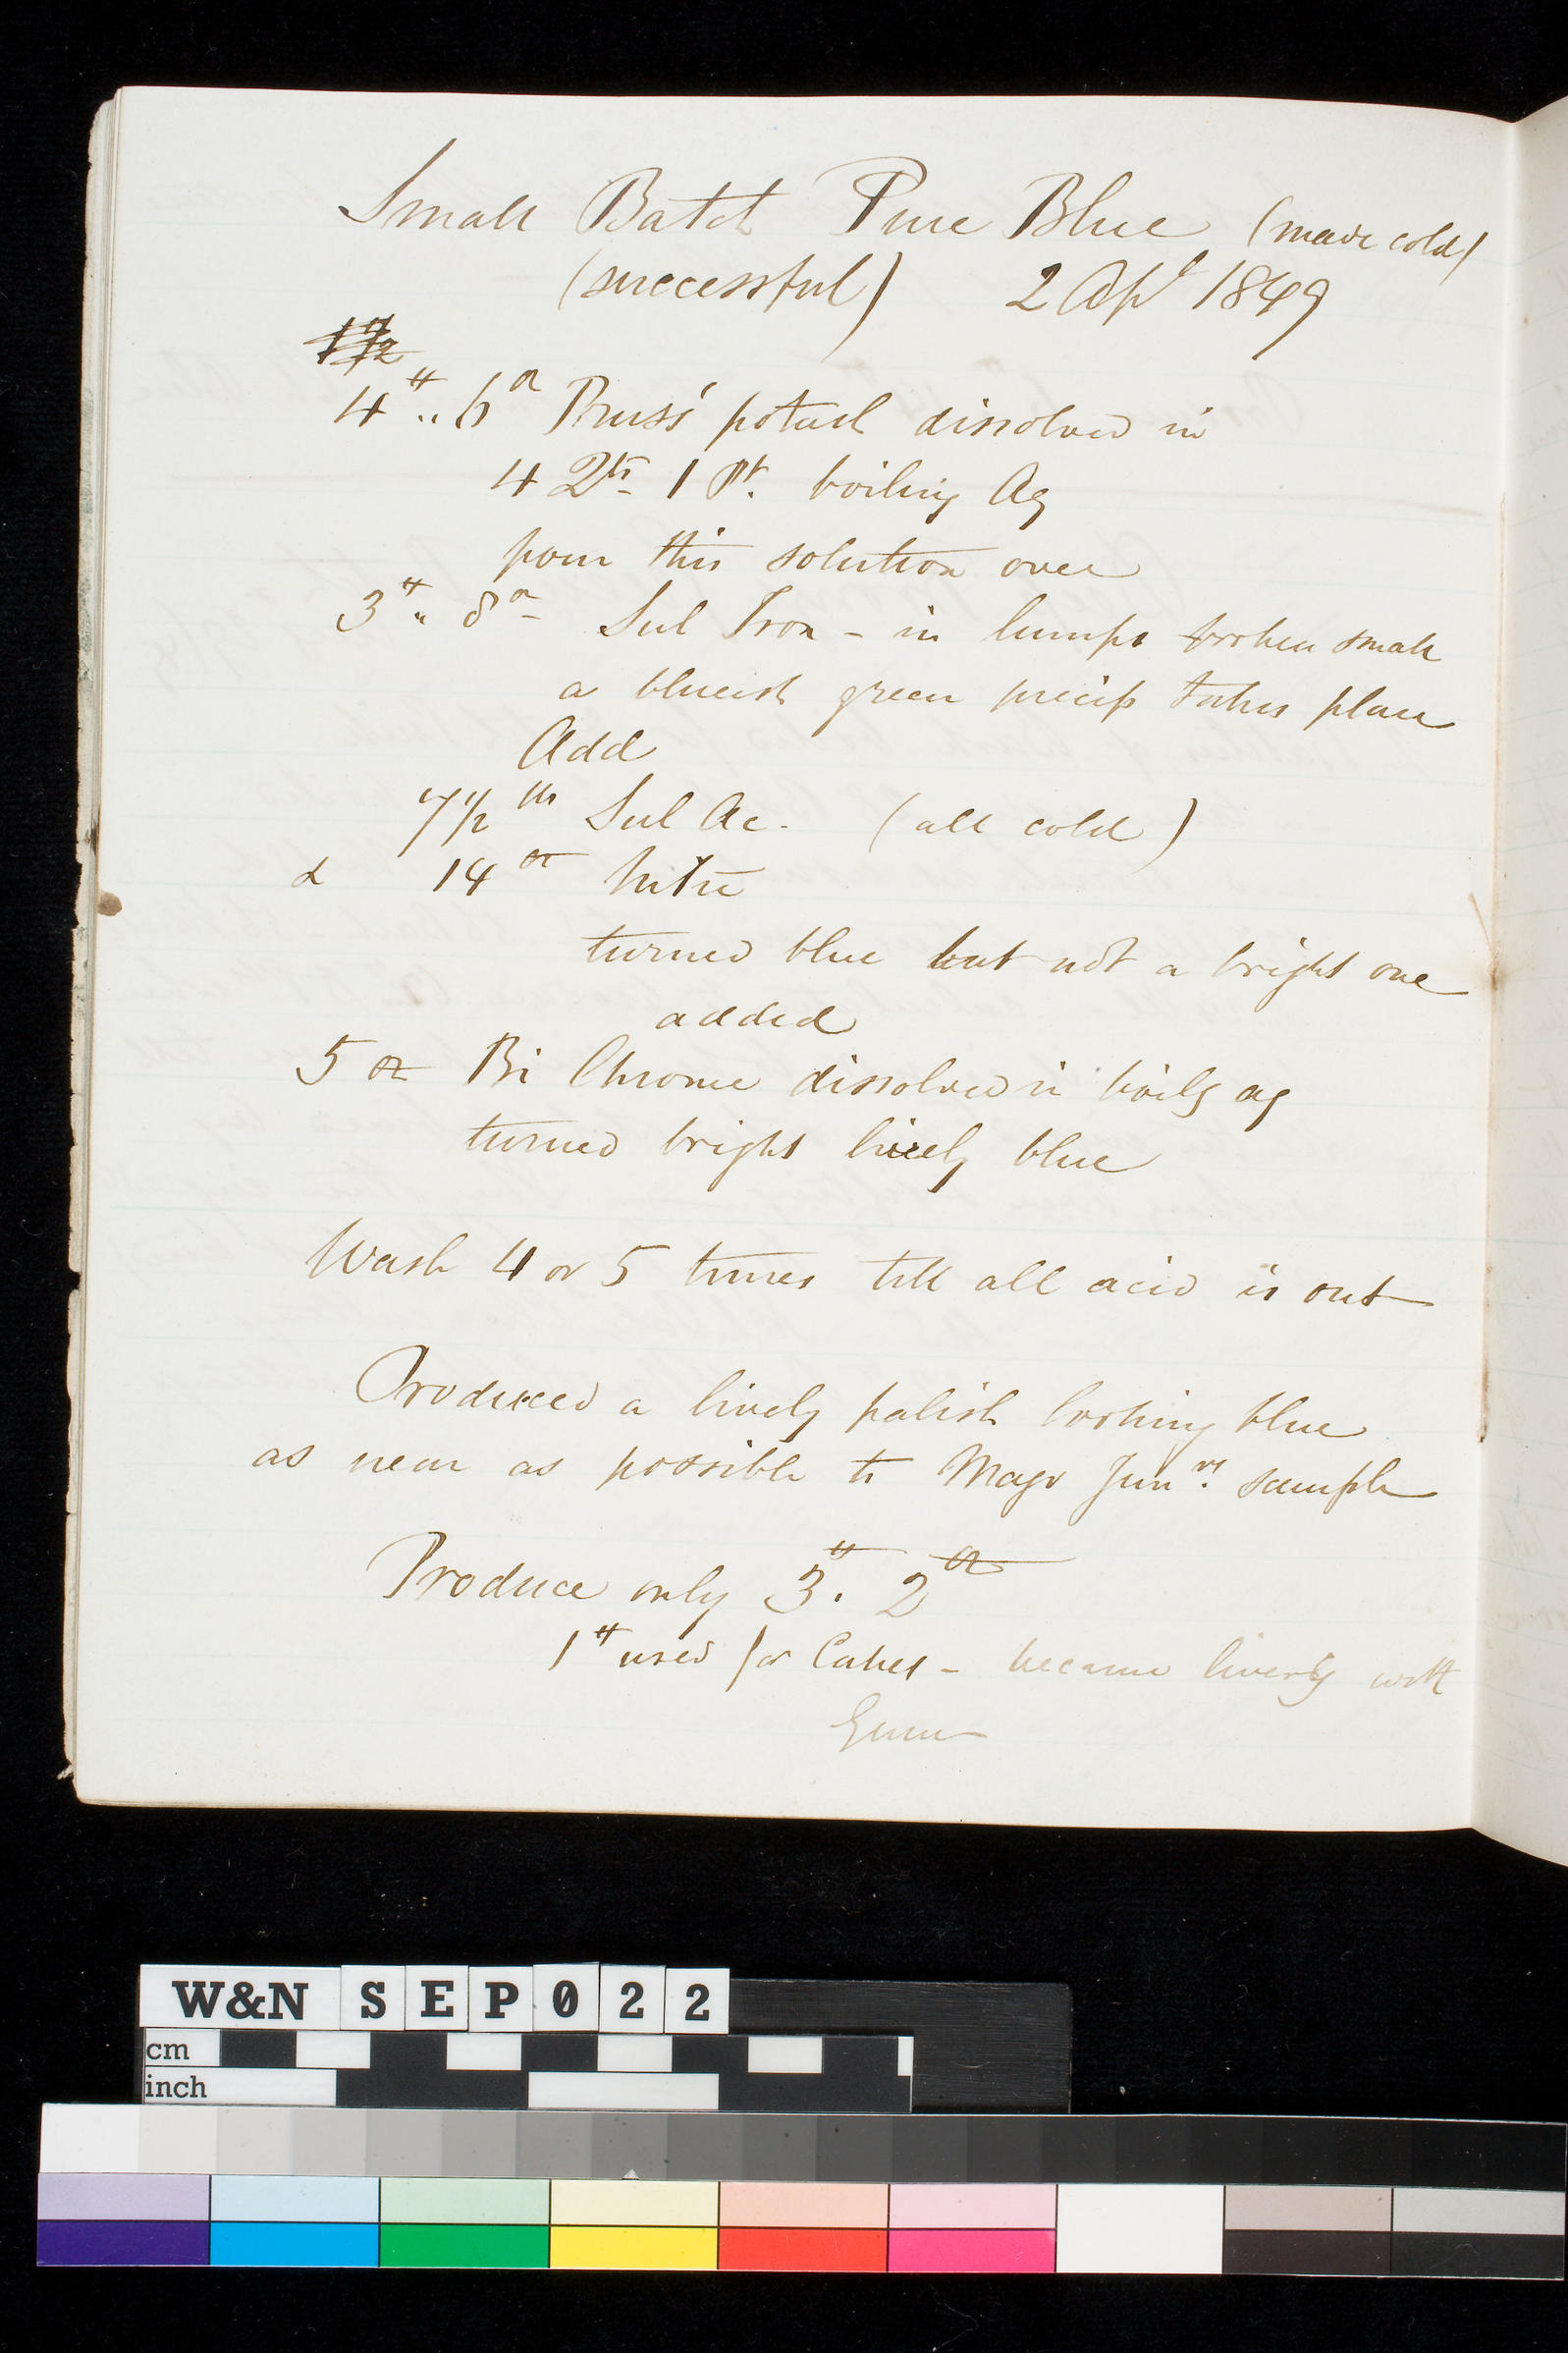 Small Batch Pure Blue (made cold)
(successful) 2 Apl 1849
1 1/2
4 lb .. 6 oz Pruss' potash dissolved in
4 Qts 1 Pt. boiling Aq
pour this solution over
3 lb .. 8 oz Sul Iron - in lumps broken small
a blueish green precip takes place
Add
7 1/2 lbs Sul Ac. (all cold)
& 14 oz Nitre
turned blue but not a bright one
added
5 oz Bi Chrome dissolved in boilg aq
turned bright lively blue
Wash 4 or 5 times till all acid is out
Produced a lively palish looking blue
as near as possible to Junrs. sample
Produce only 3 lb. 2 oz
1 lb used for Cakes - became livery with
Gum
W&N SEP022
cm
inch